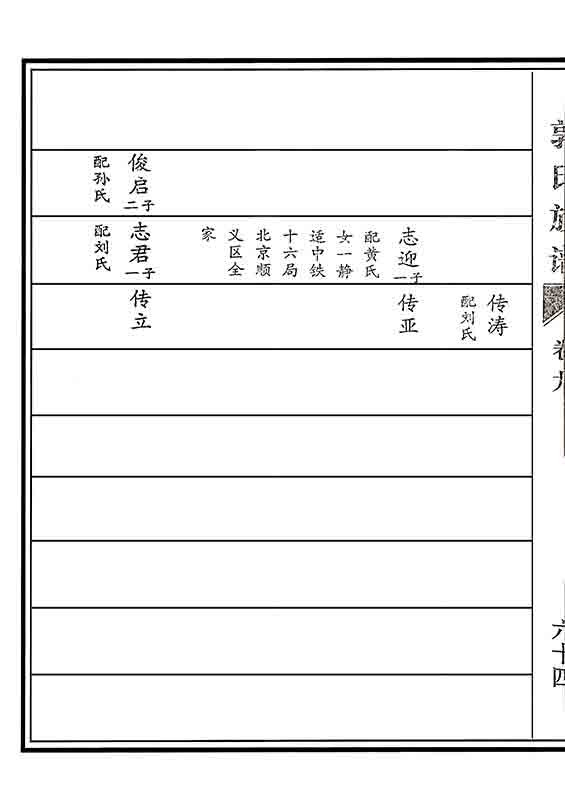 郭氏族谱
卷九
六十四
俊启
二子
配孙氏
志迎
一子
配黄氏
女一静
适中铁
十六局
北京顺
义区全
家
志君
一子
配刘氏
传涛
配刘氏
传亚
传立